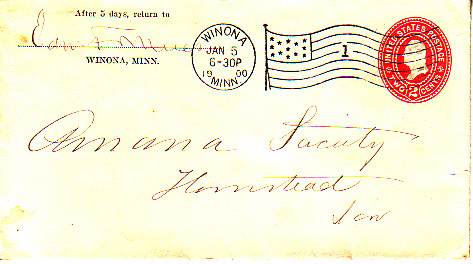 After 5 days, return to
WINONA, MINN.
WINONA
JAN 5
6-30P
1900
MINN.
1
UNITED STATES POSTAGE
TWO 2 CENTS
Amana Society
Homstead
Iow